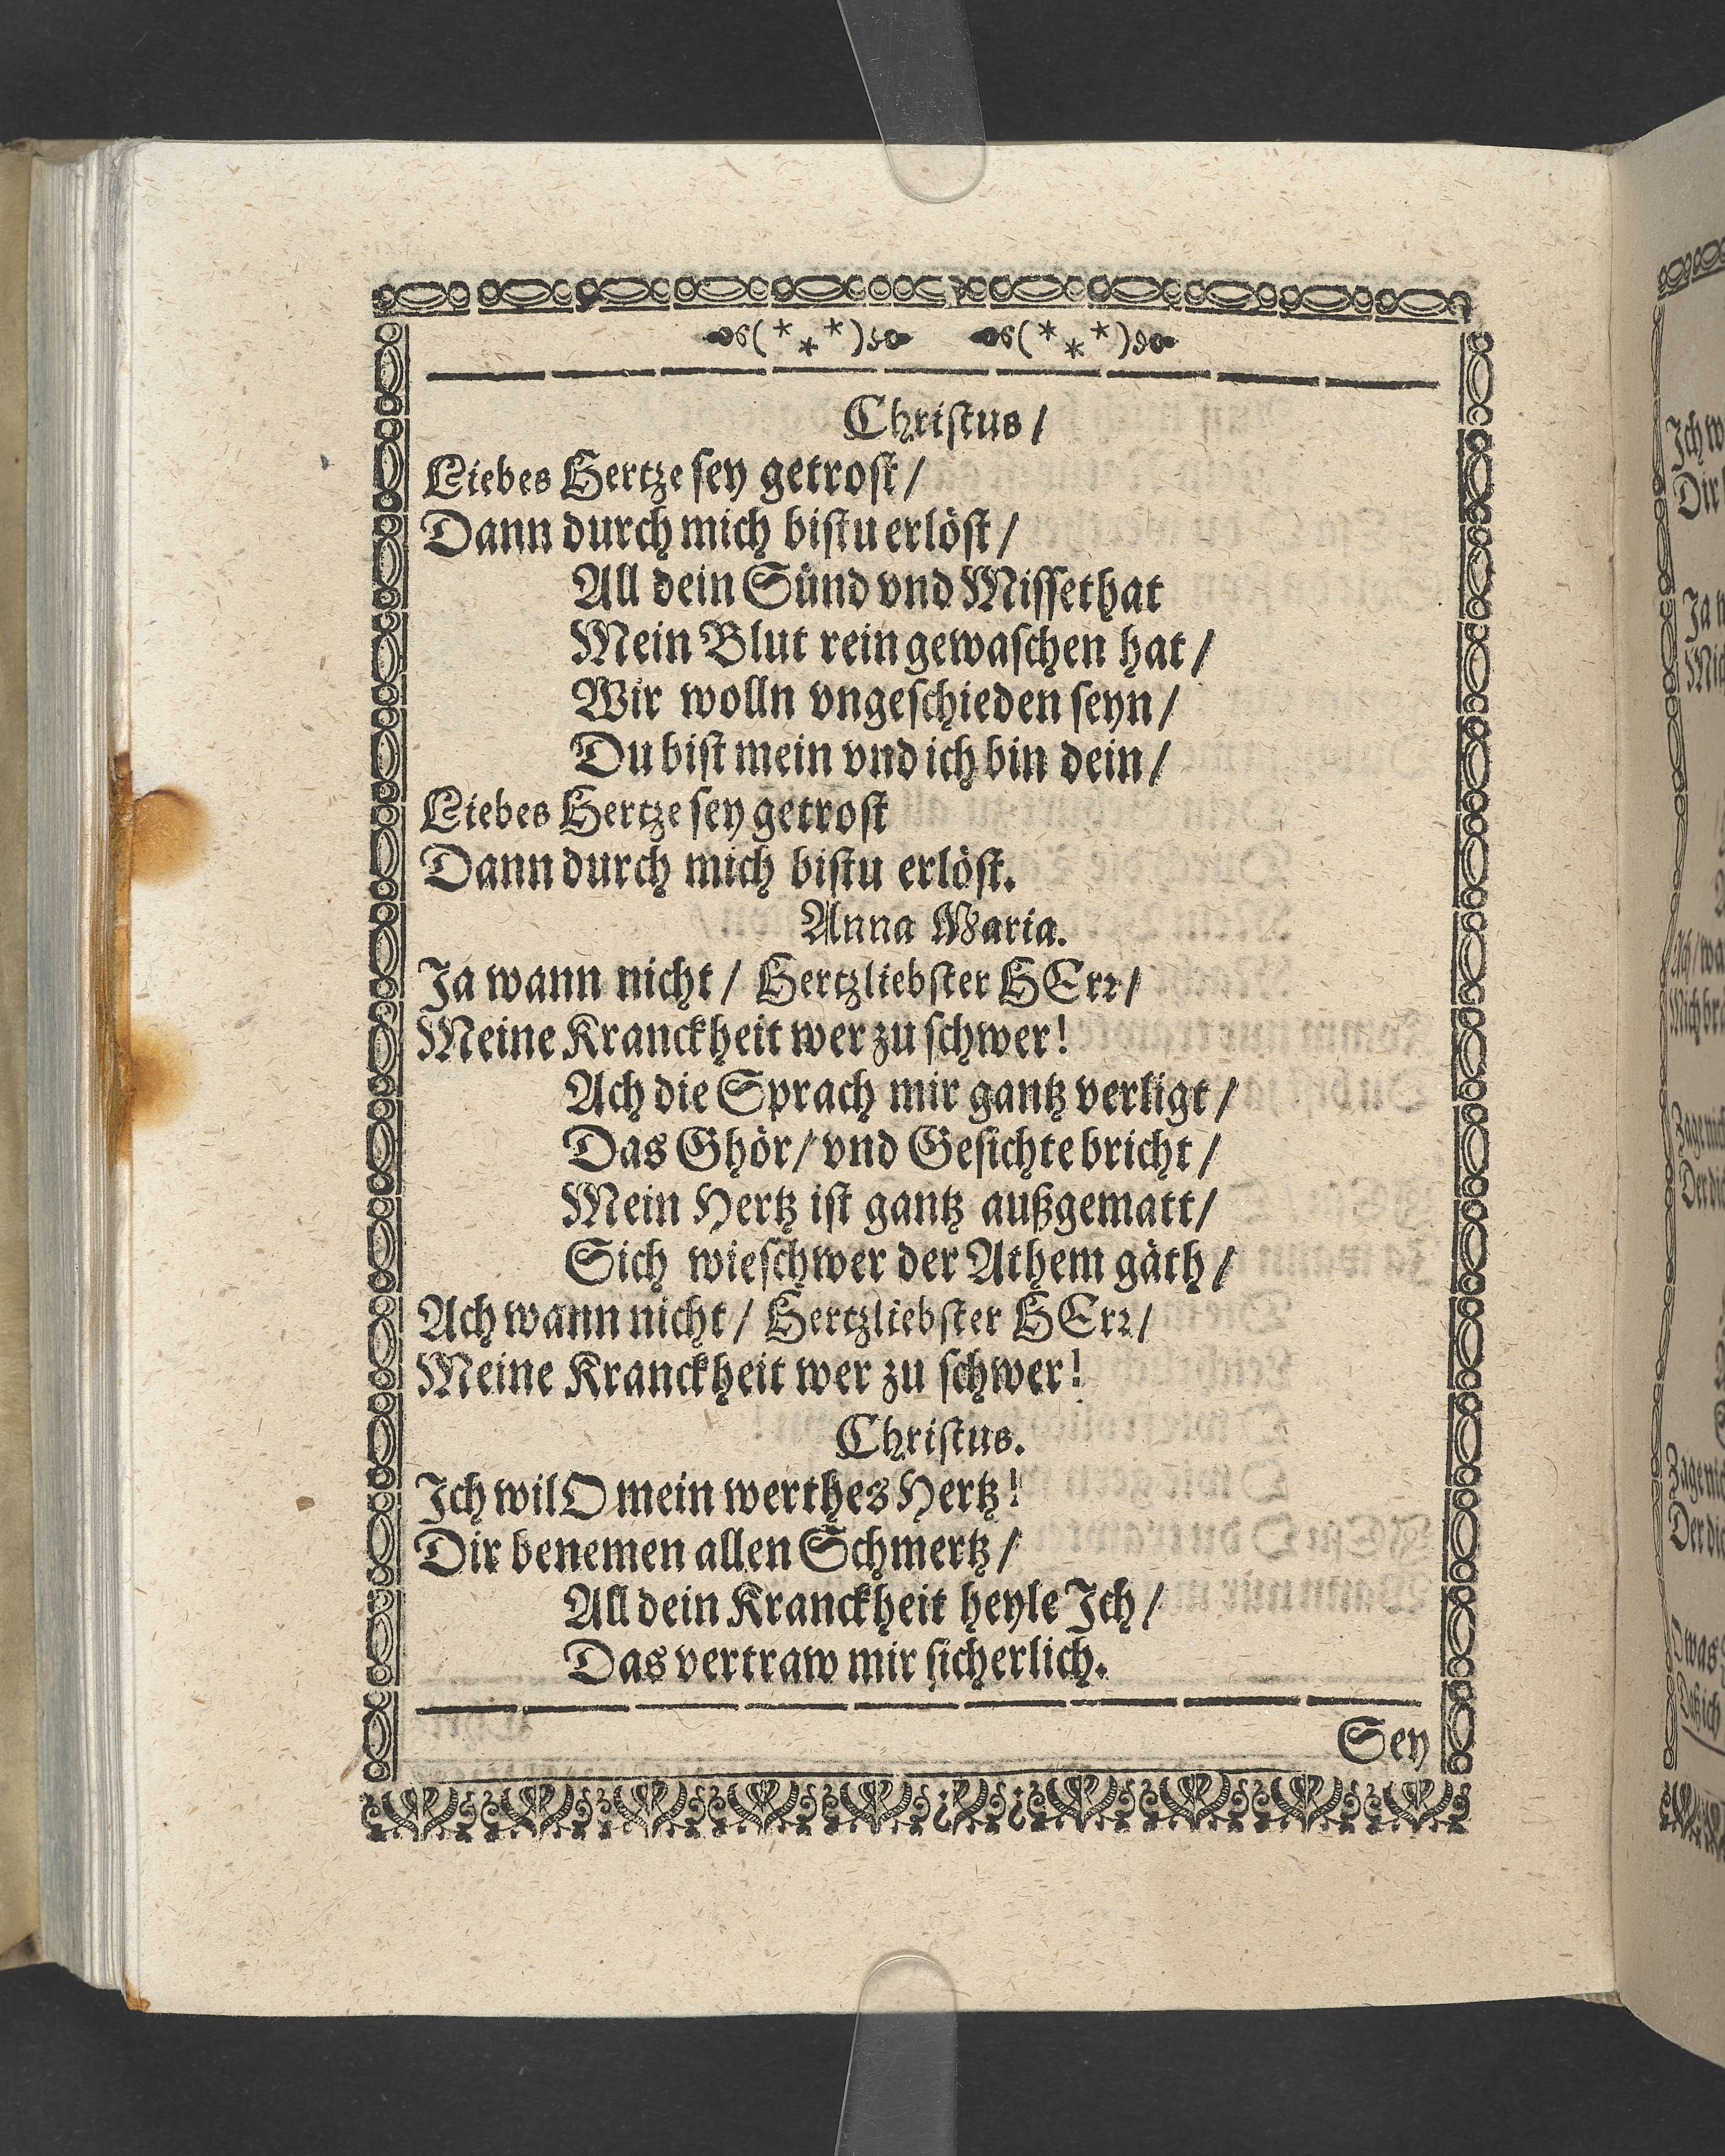 Christus /
Liebes Hertze sey getrost /
Dann durch mich bistu erlöst /
All dein Sünd vnd Missethat
Mein Blut rein gewaschen hat /
Wir wolln vngeschieden seyn /
Du bist mein vnd ich bin dein /
Liebes Hertze sey getrost
Dann durch mich bistu erlöst.
Anna Maria.
Ja wann nicht / Hertzliebster HErr /
Meine Kranckheit wer zu schwer!
Ach die Sprach mir gantz verligt /
Das Ghör / vnd Gesichte bricht /
Mein Hertz ist gantz außgematt /
Sich wie schwer der Athem gäth /
Ach wann nicht / Hertzliebster HErr /
Meine Kranckheit wer zu schwer!
Christus.
Ich wil O mein werthes Hertz!
Dir benemen allen Schmertz /
All dein Kranckheit heyle Ich /
Das vertraw mir sicherlich.
Sey